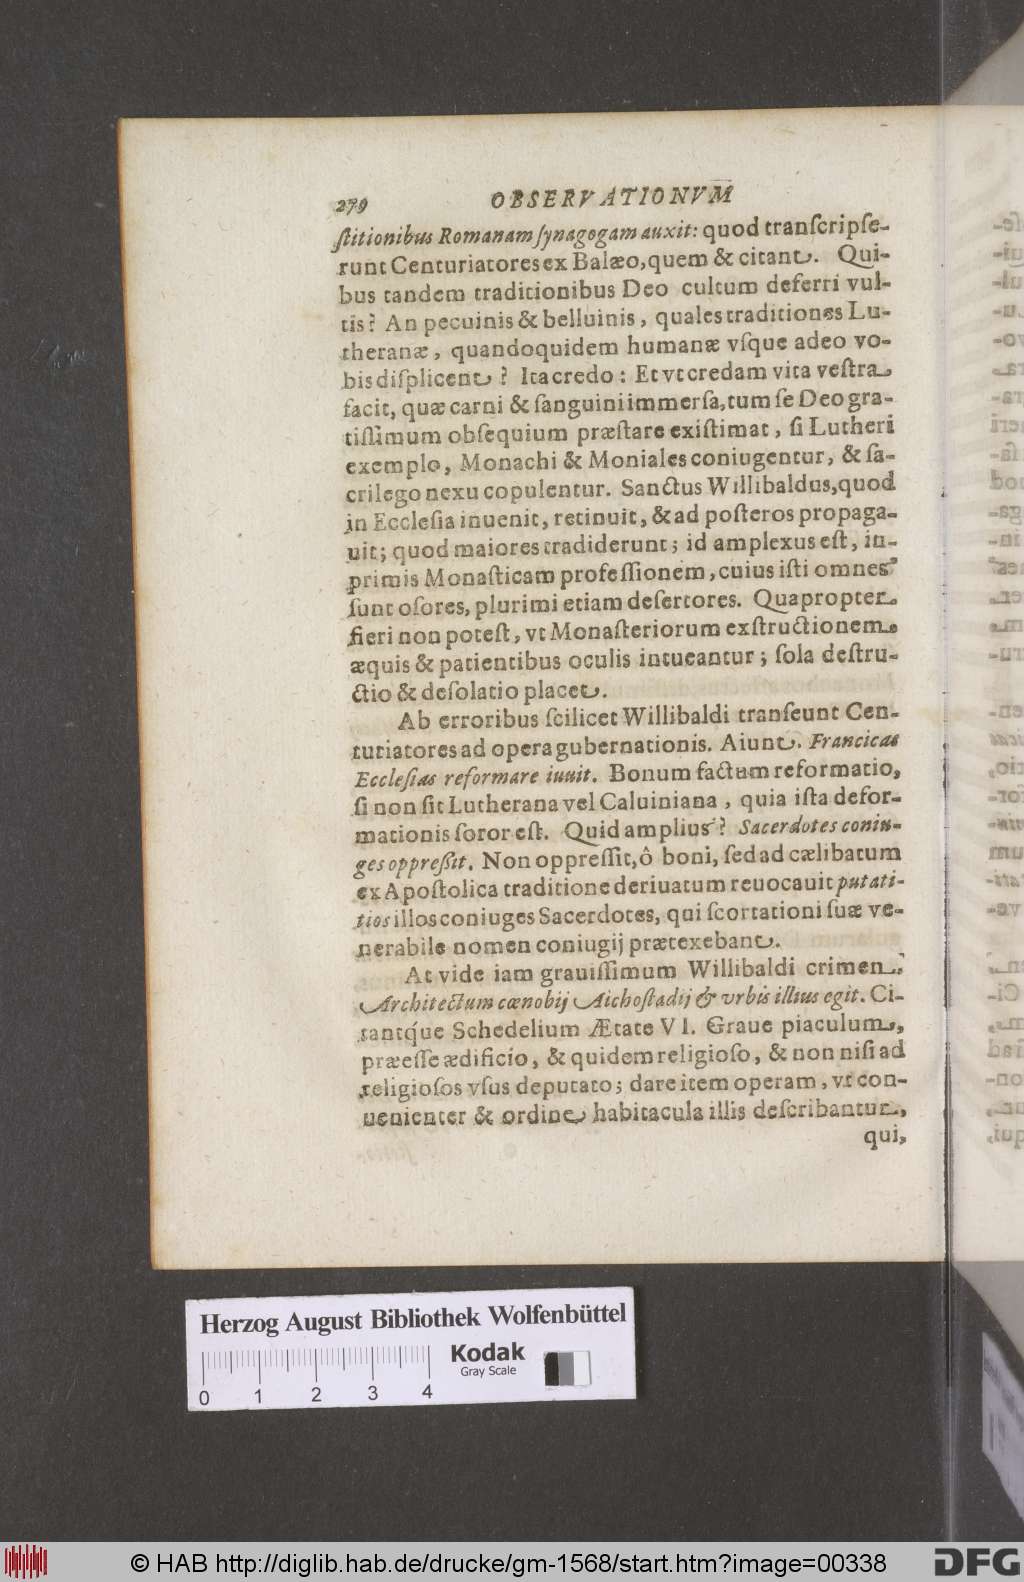 279 OBSERVATIONVM
ſtitionibus Romanam ſynagogam auxit: quod tranſcripſe-
runt Centuriatores ex Balæo, quem & citant. Qui-
bus tandem traditionibus Deo cultum deferri vul-
tis? An pecuinis & belluinis, quales traditiones Lu-
theranæ, quandoquidem humanæ vſque adeo vo-
bis diſplicent? Ita credo: Et vt credam vita veſtra
facit, quæ carni & ſanguini immerſa, tum ſe Deo gra-
tiſſimum obſequium præſtare exiſtimat, ſi Lutheri
exemplo, Monachi & Moniales coniugentur, & ſa-
crilego nexu copulentur. Sanctus Willibaldus, quod
in Eccleſia inuenit, retinuit, & ad poſteros propaga-
uit; quod maiores tradiderunt; id amplexus eſt, in-
primis Monaſticam profeſſionem, cuius iſti omnes
ſunt oſores, plurimi etiam deſertores. Quapropter
fieri non poteſt, vt Monaſteriorum exſtructionem
æquis & patientibus oculis intueantur; ſola deſtru-
ctio & deſolatio placet.
Ab erroribus ſcilicet Willibaldi tranſeunt Cen-
turiatores ad opera gubernationis. Aiunt. Francicas
Eccleſias reformare iuuit. Bonum factum reformatio,
ſi non ſit Lutherana vel Caluiniana, quia iſta defor-
mationis ſoror eſt. Quid amplius? Sacerdotes coniu-
ges oppreßit. Non oppreſſit, ô boni, ſed ad cælibatum
ex Apoſtolica traditione deriuatum reuocauit putati-
tios illos coniuges Sacerdotes, qui ſcortationi ſuæ ve-
nerabile nomen coniugij prætexebant.
At vide iam grauiſſimum Willibaldi crimen.
Architectum cœnobij Aichoſtadij & vrbis illius egit. Ci-
tantq́ue Schedelium Ætate VI. Graue piaculum,
præeſſe ædificio, & quidem religioſo, & non niſi ad
religioſos vſus deputato; dare item operam, vt con-
uenienter & ordine habitacula illis deſcribantur,
qui,
Herzog August Bibliothek Wolfenbüttel
Kodak
Gray Scale
0 1 2 3 4
© HAB http://diglib.hab.de/drucke/gm-1568/start.htm?image=00338
DFG